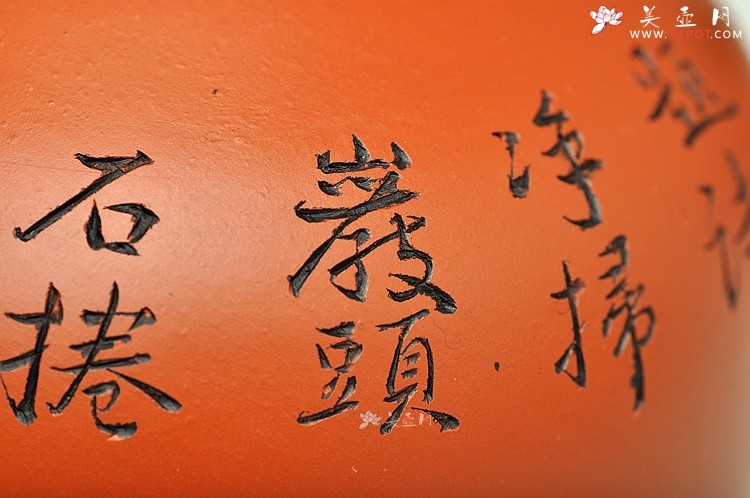 美壶月
WWW.51POT.COM
淨掃
巖頭
石捲
美壶月